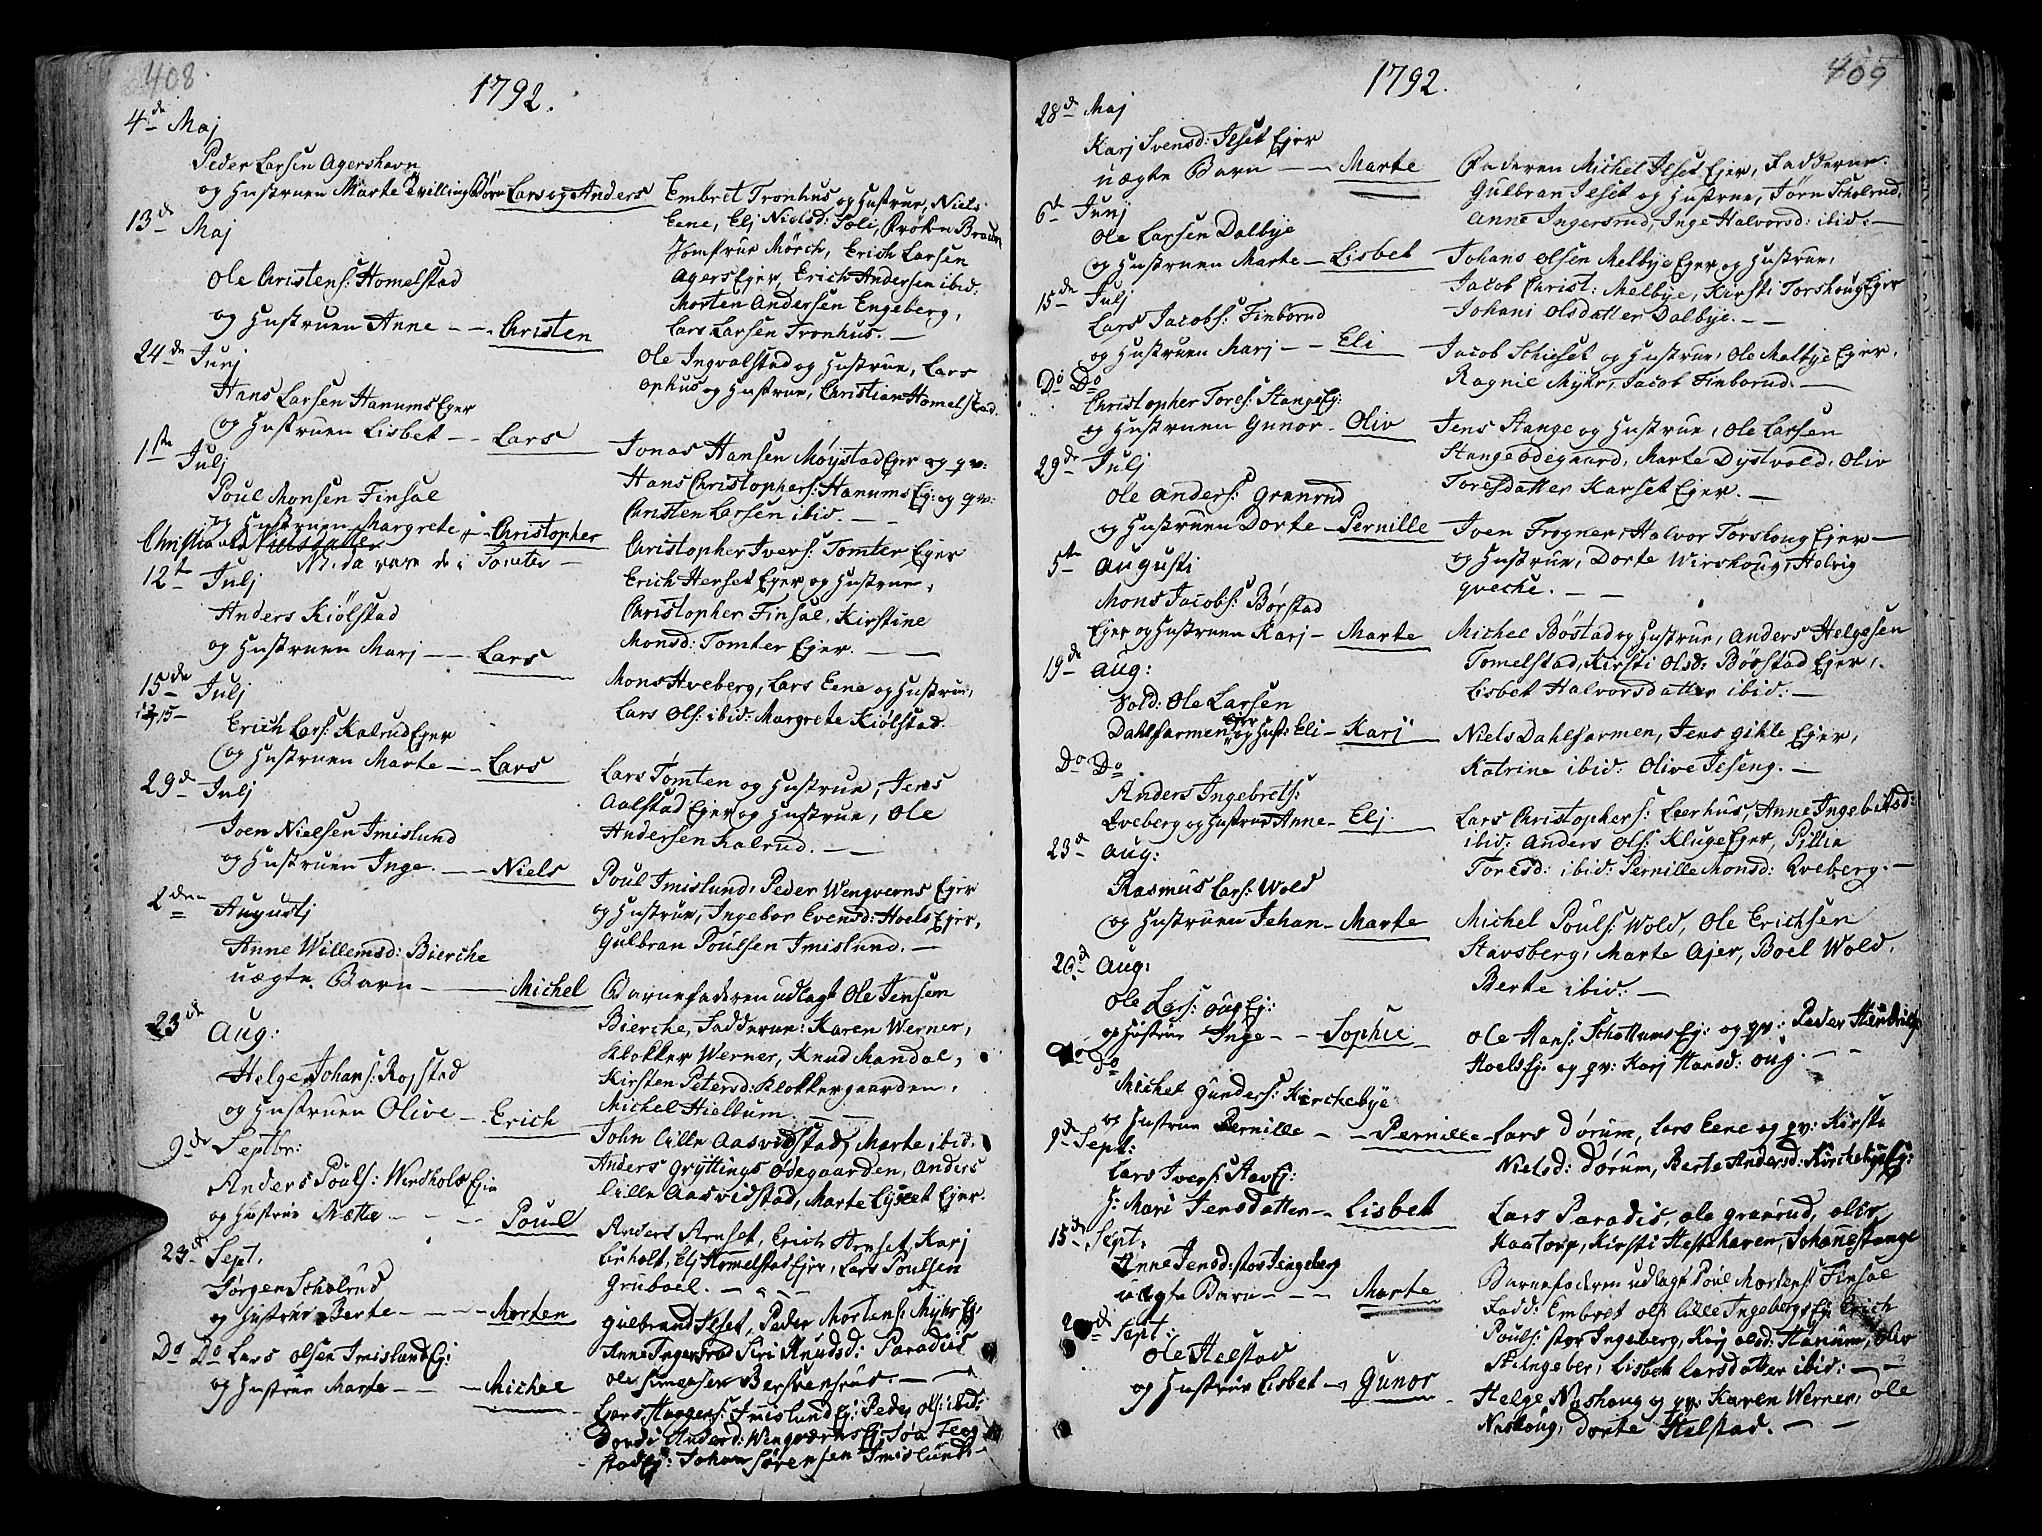 408
1792.
4de Maj
Peder Larsen Agershavn
og Hustruen Marte Tvilling Børn Lars og Anders
Embret Tronhus og Hustrue, Niels
Eene, Elj Nielsd: Soli, Frøken Braun
Jomfrue Mörch, Erich Larsen
Agers Ejer, Erich Andersen ibid:
Morten Andersen Engeberg,
Lars Larsen Tronhus. —
13de Maj
Ole Christens: Homelstad
og Hustruen Anne — — Christen
Ole Ingvalstad og Hustrue, Lars
ophus og Hustrue, Christian Homelstad.
24de Junj
Hans Larsen Hanums Ejer
og Hustruen Lisbet — — Lars
Jonas Hansen Møystad Ejer og qv:
Hans Christophers: Hanums Ej: og qv:
Christen Larsen ibid. — —
1ste Julj
Poul Monsen Finsal
og Hustruen Margrete — Christopher
Christiana Nielsdatter
NB. da vare de i Tomter —
Christopher Ivers: Tomter Ejer
Erich Herset Ejer og Hustrue,
Christopher Finsal, Kirstine
Monsd: Tomter Ejer. — —
12te Julj
Anders Kiölstad
og Hustruen Marj — — Lars
Mons Hveberg, Lars Eene og Hustrue,
Lars Ols: ibid: Margrete Kiölstad.
15de Julj
Erich Lars: Kalrud Ejer
og Hustruen Marte — — Lars
Lars Tomten og Hustrue, Jens
Aalstad Ejer og Hustrue, Ole
Andersen Kalrud. — —
29de Julj
Joen Nielsen Imislund
og Hustruen Inge. — — Niels
Poul Imislund, Peder Wengverns Ejer
og Hustrue, Ingebor Evensd: Hoels Ejer,
Gulbran Poulsen Imislund. —
2den Augustj
Anne Willemsd: Bierche
uægte Barn — — Michel
Barnefaderen udlagt Ole Jensem
Bierche, Fadderne: Karen Werner,
Klokker Werner, Knud Mandal,
Kirsten Petersd: Klokkergaarden,
Michel Hiellum. — —
23de Aug:
Helge Johans: Rosstad
og Hustruen Olive — Erich
John Lille Aasvidstad, Marte ibid.
Anders Gryttings Ødegaarden, Anders
Lille Aasvidstad, Marte Lyset Ejer.
9de Septbr:
Anders Pouls: Windhols Ejer
og Hustrue Mætte — — — Poul
Anders Arnset, Erich Arnset, Karj
Liiholt, Elj Homelstad Ejer, Lars Poulsen
Gruboel. — — —
23de Sept.
Jörgen Scholrud
og Hustrue Berte — — — Morten
Gulbrand Ilset, Peder Mortens: Myhr Ej:
Anne Ingersrud Siri Knudsd: Paradis
ole Simensen Berstenhus. — —
Do Do Lars Olsen Imislund Ej:
og Hustrue Marte — — — Michel
Lars Haagens: Imislund Ej: Peder Ols: ibid:
Dordi Anderd: Wengværns Ej:
stad Ej: Johan Sørensen Imislund —
409
1792.
28de Maj
Karj Svensd: Ilset Ejer
uægte Barn — — Marte
Faderen Michel Ilset Ejer, Fadderne:
Gulbran Ilset og Hustrue, Jörn Scholrud,
Anne Ingersrud, Inge Halvorsd: ibid: —
6te Junj
Ole Larsen Dalbye
og Hustruen Marte — Lisbet
Johans Olsen Melbye Ejer og Hustrue,
Jacob Christ: Melbye, Kirsti Torshoug Ejer
Johani Olsdatter Dalbye. — —
15de Julj
Lars Jacobs: Finborud
og Hustruen Marj — — Eli
Jacob Schieset og Hustrue, Ole Melbye Ejer,
Ragnil Myhr, Jacob Finborud. —
Do Do
Christopher Tores: Stange Ej:
og Hustruen Gunor — Oliv
Jens Stange og Hustrue, Ole Larsen
Stange ødegaard, Marte Dystvold, Oliv
Toresdatter Karset Ejer. —
29de Julj
Ole Anders: Granrud
og Hustruen Dorte — Pernille
Iven Frogner, Halvor Torshoug Ejer —
og Hustrue, Dorte Wirshoug, Helvig
Qveche. — —
5te Augusti
Mons Jacobs: Börstad
Ejer og Hustruen Karj — Marte
Michel Böstad og Hustrue, Anders Helgesen
Tomelstad, Kirsti Olsd: Börstad Ejer,
Lisbet Halvorsdatter ibid: —
19de Aug:
Sold: Ole Larsen
Dahlsarmen Ejer og Hust: Eli — Karj
Niels Dahlsarmen, Jens Gihle Ejer,
Katrine ibid: Olive Jeseng. —
Do Do
Anders Ingebrets:
Qveberg og Hustrue Anne — Elj
Lars Christophers: Leerhus, Anne Ingebretsd:
ibid: Anders Ols: Kluge Ejer, Pillia
Toresd: ibid: Pernille Monsd: Qveberg. —
23de Aug:
Rasmus Lars: Wold
og Hustruen Johan — Marte
Michel Pouls: Wold, Ole Erichsen
Stavsberg, Marte Ajer, Boel Wold,
Berte ibid: —
26de Aug:
Ole Lars: oug Ej:
og Hustrue Inge — — Sophie
Ole Hans: Schattums Ej: og qv: Peder Hendrichs:
Hoels Ej: og qv: Karj Hansd: oug. — —
Do Do
Michel Gunders: Kirchebye
og Hustrue Pernille — — Pernille
Lars Dörum, Lars Eene og qv: Kirsti
Nielsd: Dörum, Berte Andersd: Kirchebye Ej:
9de Sept:
Lars Ivers: Aas Ej:
H: Mari Jensdatter — Lisbet
Lars Paradis, Ole Granrud, Oliv
Kaatorp, Kirsti Hestehaven, Johane Stange
15de Sept:
Anne Jensd: stor Ingeberg
uægte Barn — — — Marte
Barnefaderen udlagt Poul Mortens: Finsal
Fadd: Embret Ols: Lille Ingebergs Ej: Erich
Pouls: stor Ingeberg, Karj Olsd: Hanum, Oliv
St: Ingeber, Lisbet Larsdatter ibid: — —
Sept:
Ole Helstad
og Hustrue Lisbet — Gunor
Helge Nashoug og qv: Karen Werner, Ole
Nashoug, Dorte Helstad. — —